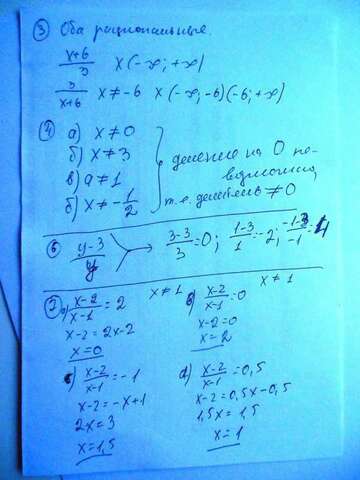 ③ Оба рациональные.
x+6/3 x(-∞; +∞)
3/x+6 x ≠ -6 x(-∞; -6)(-6; +∞)
④ а) x ≠ 0
б) x ≠ 3
в) a ≠ 1
б) x ≠ -1/2
деление на 0 не-
возможно,
т.е. делитель ≠ 0
⑥ y-3/y → 3-3/3 = 0; 1-3/1 = -2; -1-3/-1 = 4
x-2/x-1 = 2 x ≠ 1
x-2 = 2x-2
x = 0
в) x-2/x-1 = 0 x ≠ 1
x-2 = 0
x = 2
x-2/x-1 = -1
x-2 = -x+1
2x = 3
x = 1,5
x-2/x-1 = 0,5
x-2 = 0,5x-0,5
1,5x = 1,5
x = 1